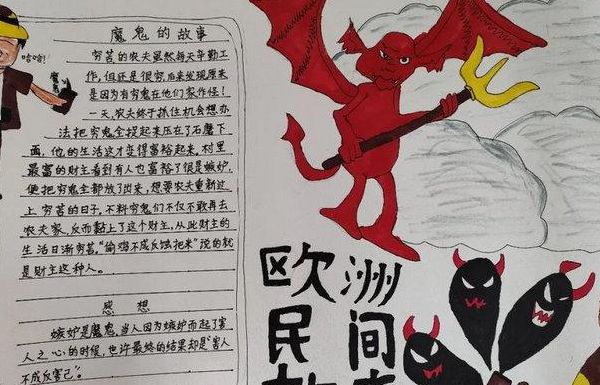 魔鬼的故事
哈哈!
穷苦的农夫虽然每天辛勤工
作,但还是很穷,后来发现原来
是因为有穷鬼在他们家作怪!
一天,农夫终于抓住机会想办
法把穷鬼全捉起来压在了石磨下
面,他的生活这才变得富裕起来,村里
最富的财主看到有人也富裕了很是嫉妒,
便把穷鬼全都放了出来,想要农夫重新过
上穷苦的日子,不料穷鬼们不仅不敢再去
农夫家,反而黏上了这个财主,从此财主的
生活日渐穷苦。"偷鸡不成反蚀把米"说的就
是财主这种人。
感想
嫉妒是魔鬼,当人因为嫉妒而起了害
人之心的时候,也许最终的结果却是"害人
不成反害己"。
欧洲
民间